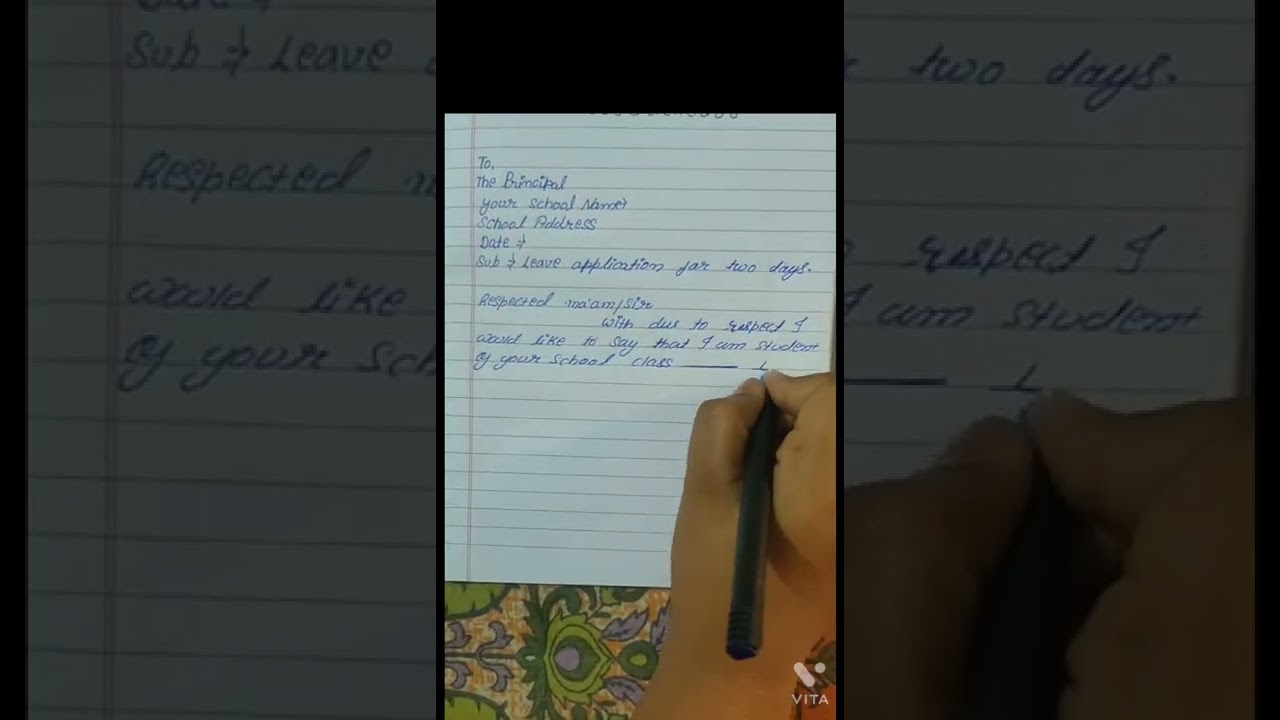 To,
The Principal
your School Name→
School Address
Date →
Sub → Leave application for two days.
Respected ma'am/Sir
with due to respect I
would like to say that I am student
of your School class ____
VITA